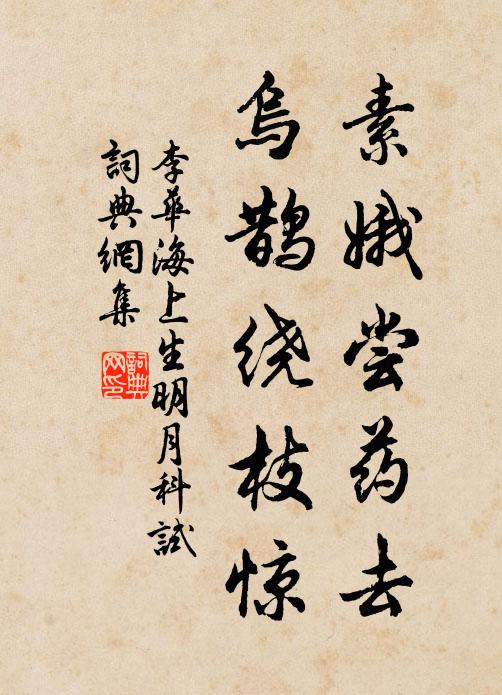 素娥尝药去
乌鹊绕枝惊
李華海上生明月科試
詞典網集
詞典网印